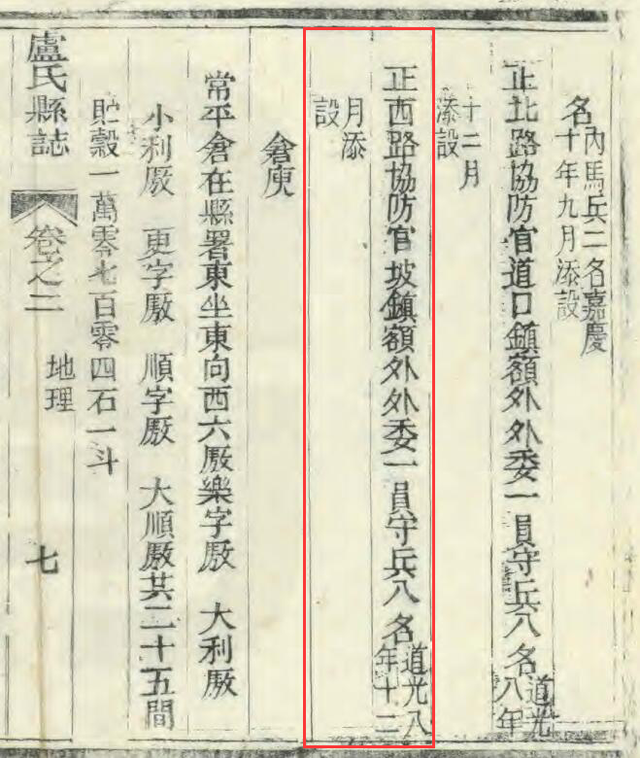 名內馬兵二名嘉慶
十年九月添設
正北路協防官道口鎮額外外委一員守兵八名道光
八年
十二月
添設
正西路協防官坡鎮額外外委一員守兵八名道光八
年十二
月添
設
倉庾
常平倉在縣署東坐東向西六厫樂字厫 大利厫
小利厫 更字厫 順字厫 大順厫共二十五間
貯穀一萬零七百零四石一斗
盧氏縣誌 卷之二 地理 七